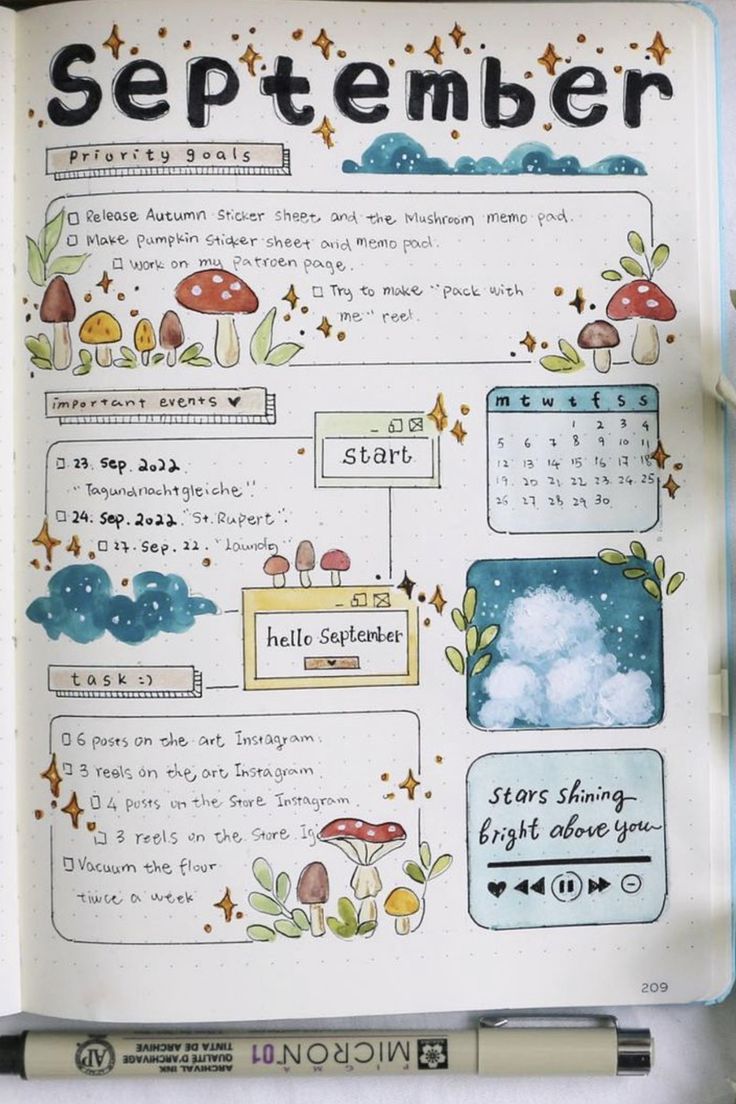 September
Priority goals
Release Autumn Sticker sheet and the Mushroom memo pad.
Make Pumpkin Sticker sheet and memo pad.
Work on my Patroen page.
Try to make "pack with
me" reel.
important events ♥
23. Sep. 2022
"Tagundnachtgleiche".
24. Sep. 2022. "St. Rupert".
27. Sep. 22. "Laundy"
start
m t w t f s s
1 2 3 4
5 6 7 8 9 10 11
12 13 14 15 16 17 18
19 20 21 22 23 24 25
26 27 28 29 30
hello September
task :)
6 posts on the art Instagram.
3 reels on the art Instagram.
4 posts on the Store Instagram.
3 reels on the Store Ig
Vacuum the flour
twice a week
stars shining
bright above you
209
PIGMA MICRON 01
ARCHIVAL INK
QUALITÉ D'ARCHIVAGE
TINTA DE ARCHIVE
AP